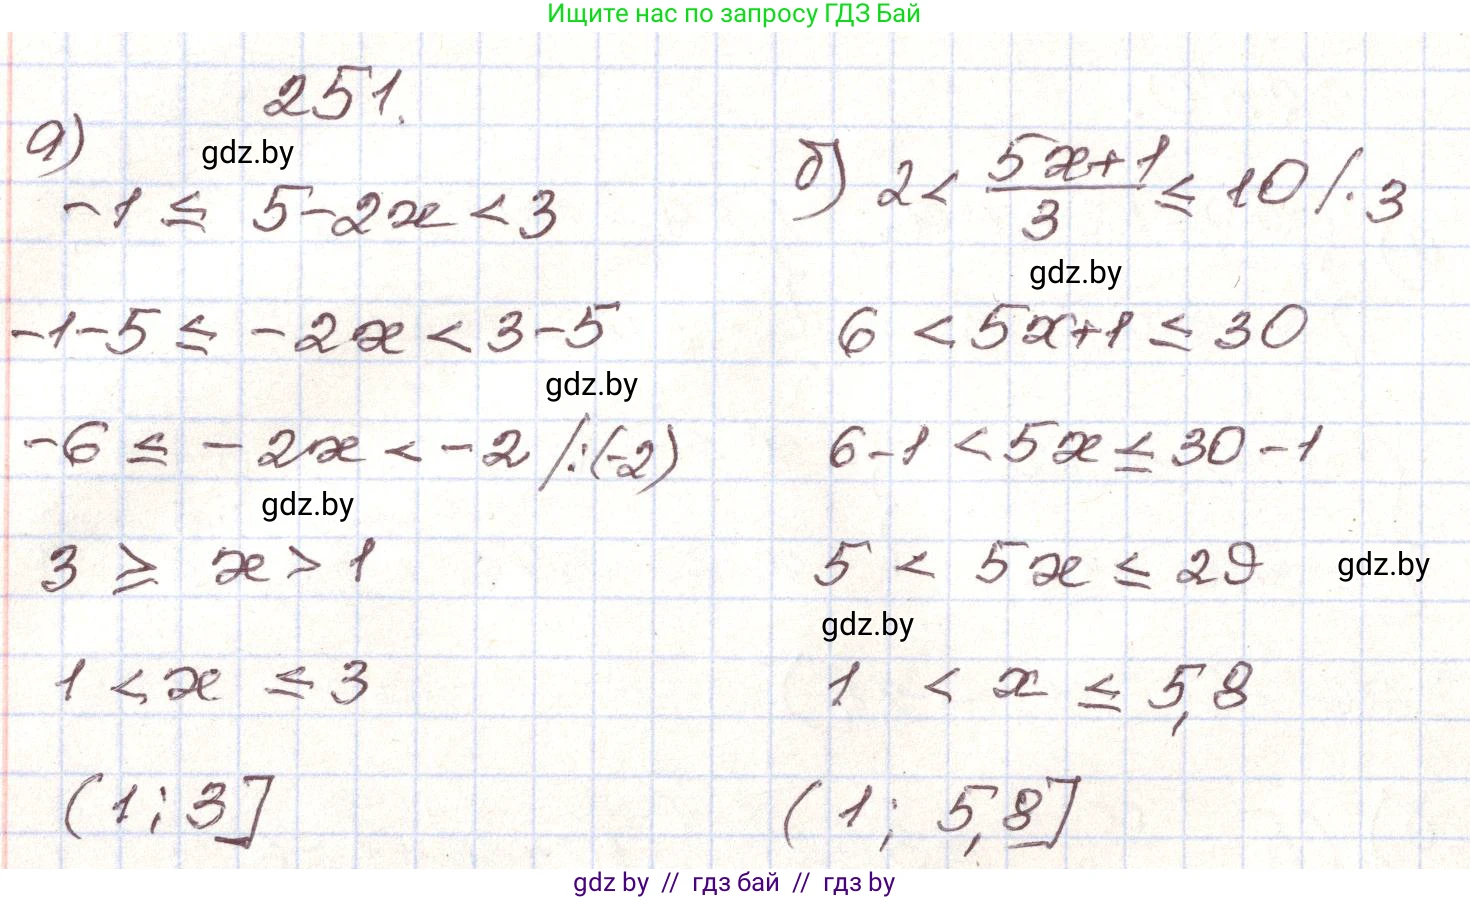 Ищите нас по запросу ГДЗ Бай
251.
а)
gdz.by
-1 ≤ 5-2x < 3
-1-5 ≤ -2x < 3-5
gdz.by
-6 ≤ -2x < -2 /:(-2)
gdz.by
3 ≥ x > 1
1 < x ≤ 3
(1; 3]
б) 2 < (5x+1)/3 ≤ 10 /·3
gdz.by
6 < 5x+1 ≤ 30
6-1 < 5x ≤ 30-1
5 < 5x ≤ 29
gdz.by
gdz.by
1 < x ≤ 5,8
(1; 5,8]
gdz by // гдз бай // гдз by